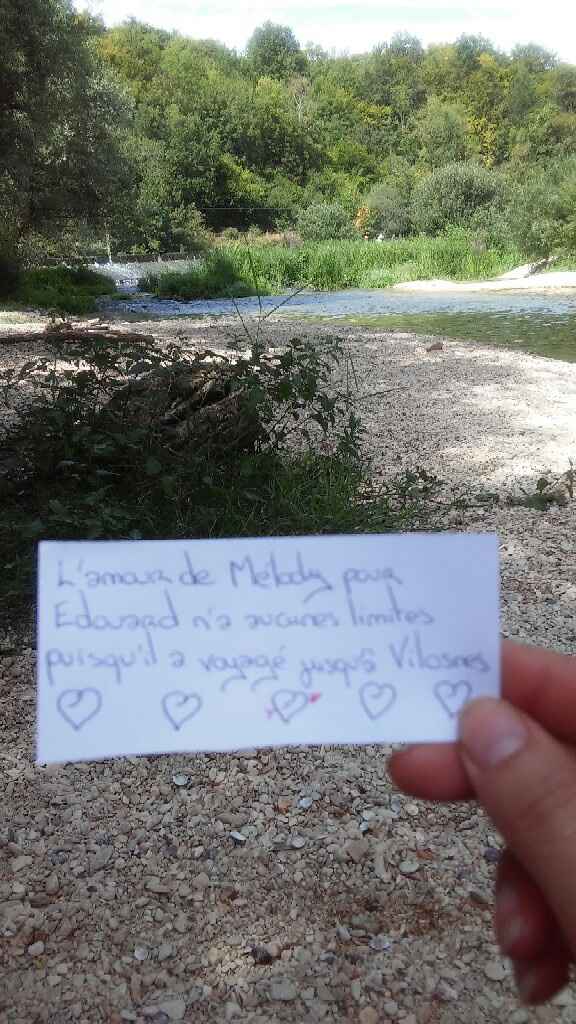 L'amour de Mélody pour
Edouard n'a aucunes limites
puisqu'il a voyagé jusqu'à Vilosnes